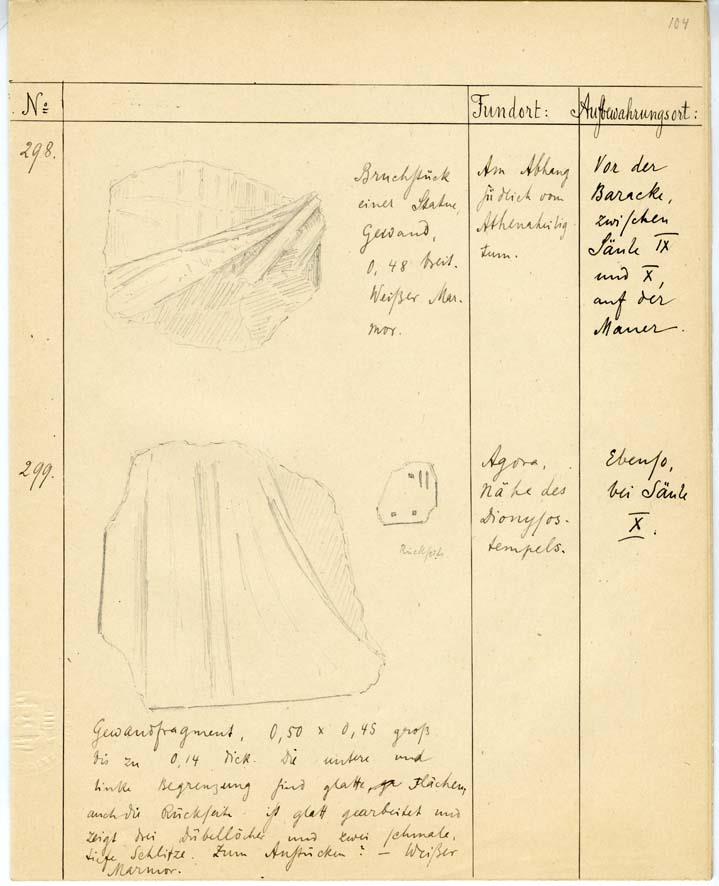 104
No Fundort: Aufbewahrungsort:
298.
Bruchstück
einer Statue,
Gewand,
0,48 breit.
Weißer Mar-
mor.
Am Abhang
südlich vom
Athenaheilig
tum.
Vor der
Baracke,
zwischen
Säule IX
und X,
auf der
Mauer.
299.
Rückseite
Agora,
Nähe des
Dionysos-
tempels.
Ebenso,
bei Säule
X.
Gewandfragment, 0,50 x 0,45 groß
bis zu 0,14 dick. Die untere und
linke Begrenzung sind glatte Flächen,
auch die Rückseite ist glatt gearbeitet und
zeigt drei Dübellöcher und zwei schmale,
tiefe Schlitze. Zum Anstücken? – Weißer
Marmor.